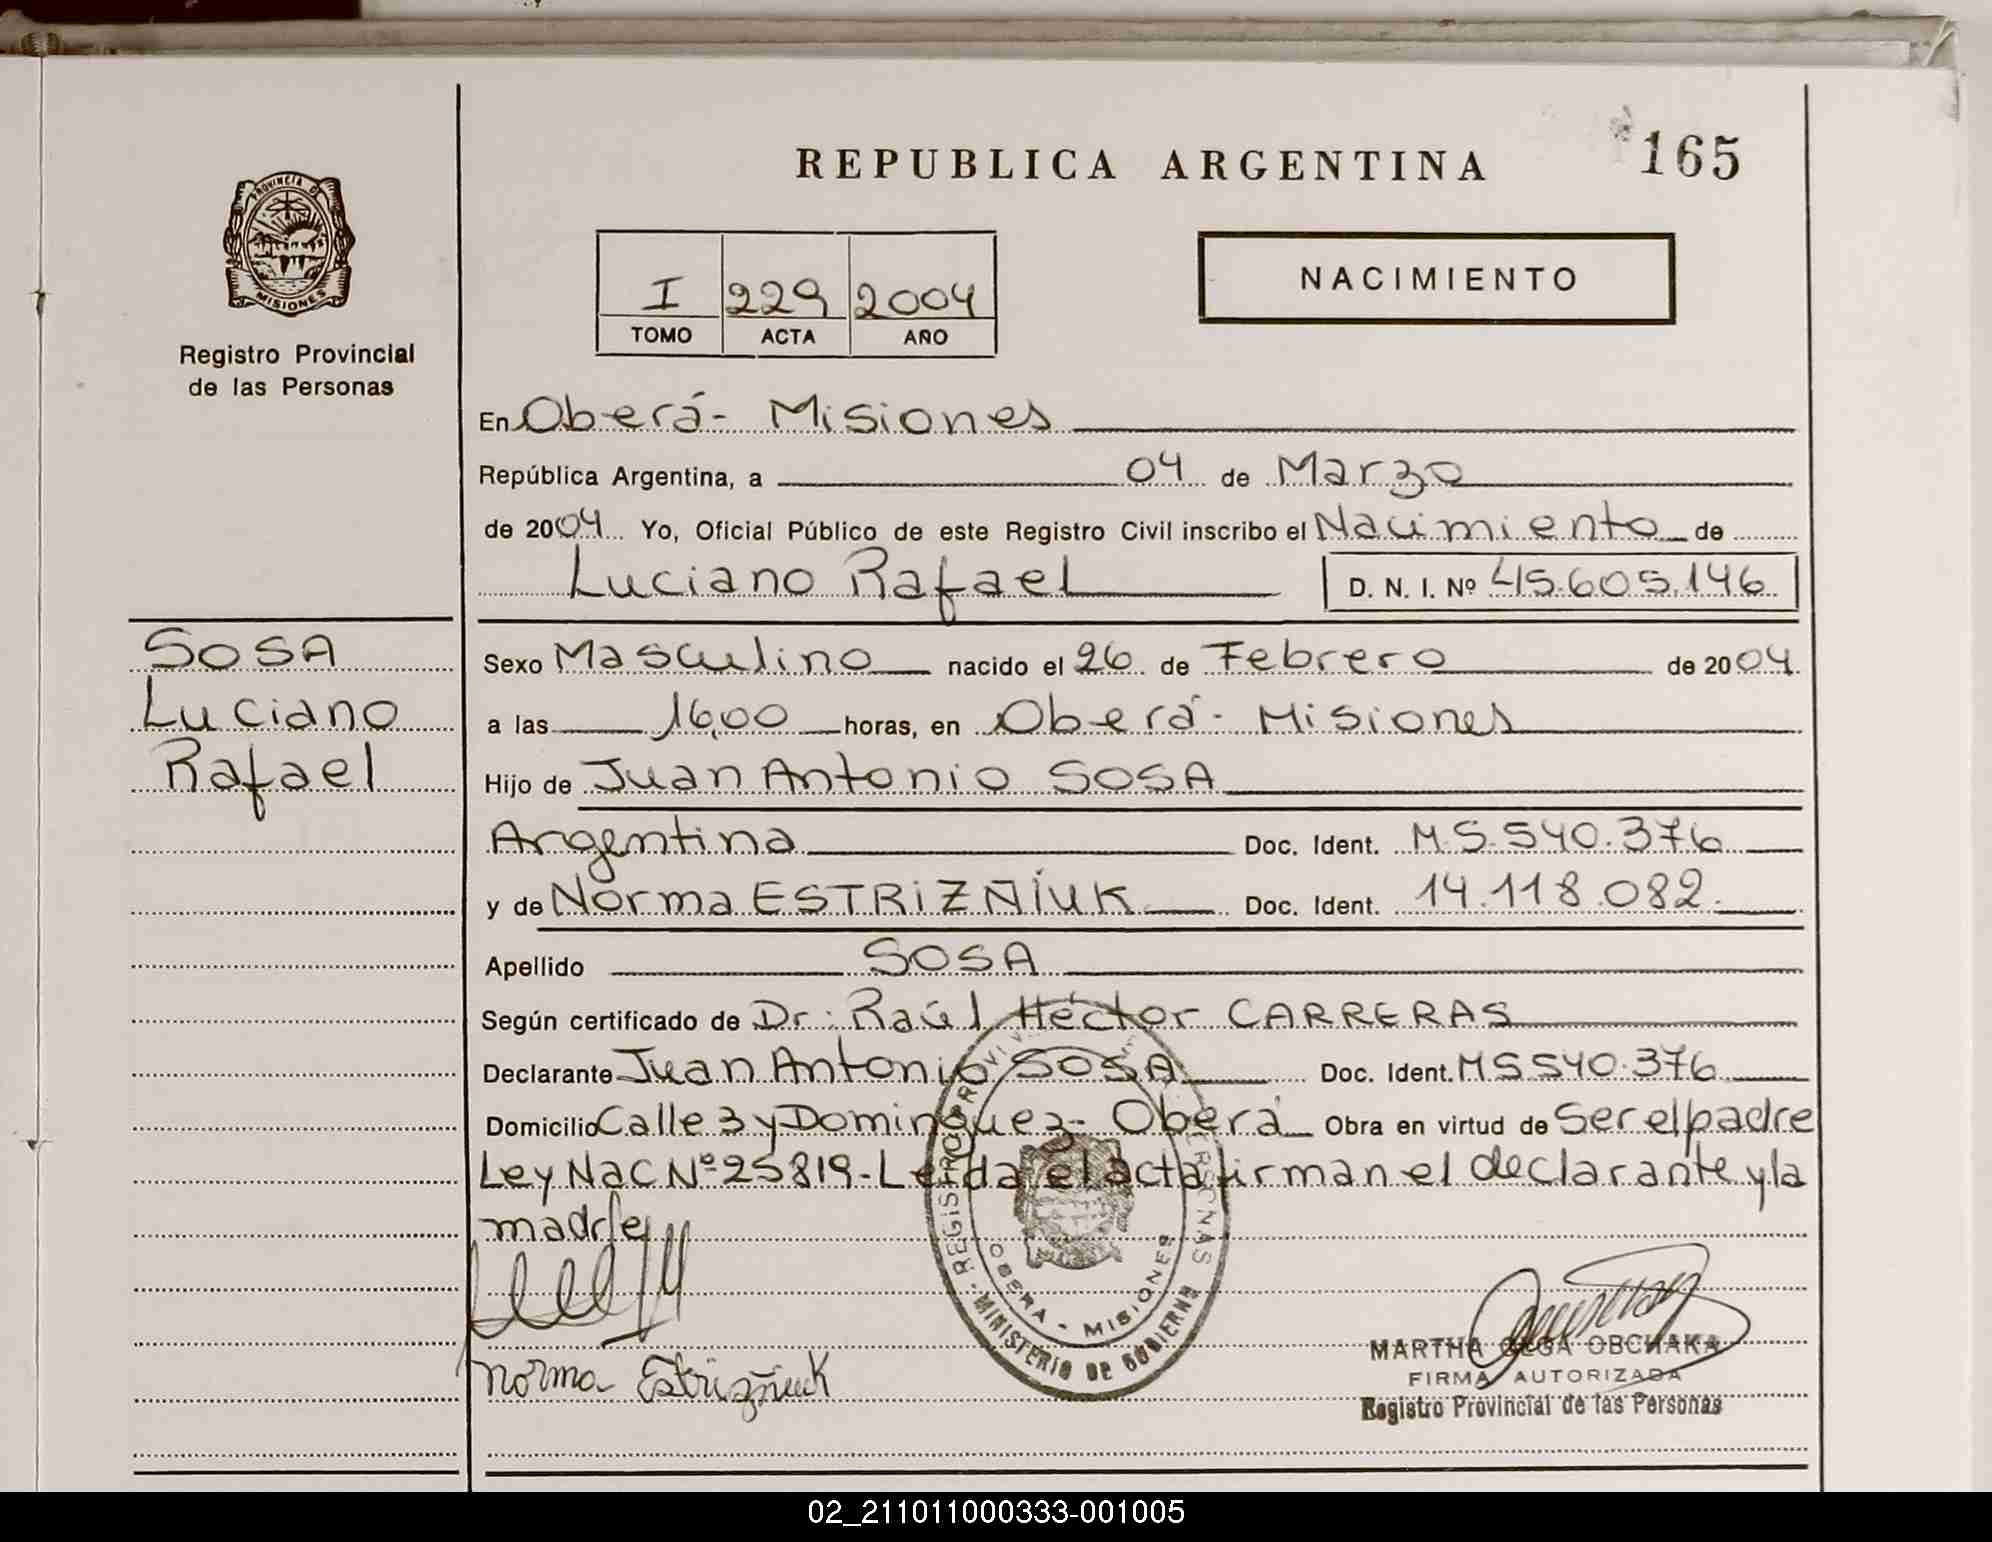 REPUBLICA ARGENTINA
165
PROVINCIA D
MISIONES
Registro Provincial
de las Personas
I 229 2004
TOMO ACTA AÑO
NACIMIENTO
En Oberá - Misiones
República Argentina, a 04 de Marzo
de 2004 Yo, Oficial Público de este Registro Civil inscribo el Nacimiento de
Luciano Rafael D. N. I. Nº 45.605.146
SOSA
Luciano
Rafael
Sexo Masculino nacido el 26 de Febrero de 2004
a las 16,00 horas, en Oberá - Misiones
Hijo de Juan Antonio SOSA
Argentina Doc. Ident. M 5.540.376
y de Norma ESTRIZÑIUK Doc. Ident. 14.118.082
Apellido SOSA
Según certificado de Dr: Raúl Héctor CARRERAS
Declarante Juan Antonio SOSA Doc. Ident. M5540.376
Domicilio Calle 3 y Dominguez - Oberá Obra en virtud de Ser el padre
Ley Nac Nº 25819 - Leida el acta firman el declarante y la
madre
REGISTRO PROVINCIAL DE LAS PERSONAS
OBERA - MISIONES
MINISTERIO DE GOBIERNO
Norma Estrizñiuk
MARTHA OLGA OBCHAKA
FIRMA AUTORIZADA
Registro Provincial de las Personas
02_211011000333-001005